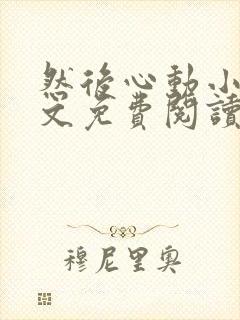 然後心動小
文免費閱讀
穆尼里奧